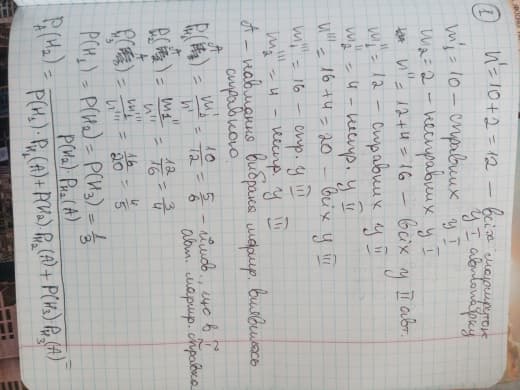 1
n' = 10+2 = 12 – всіх маршруток
у I автопарку
m₁' = 10 – справних у I
m₂' = 2 – несправних у I
n'' = 12+4 = 16 – всіх у II авт.
m₁'' = 12 – справних у II
m₂'' = 4 – неспр. у II
n''' = 16+4 = 20 – всіх у III
m₁''' = 16 – спр. у III
m₂''' = 4 – неспр. у III
A – навмання вибрана маршр. виявилась
справною.
P_H₁(A) = m₁'/n' = 10/12 = 5/6 – ймов., що в I
авт. маршр. справна
P_H₂(A) = m₁''/n'' = 12/16 = 3/4
P_H₃(A) = m₁'''/n''' = 16/20 = 4/5
P(H₁) = P(H₂) = P(H₃) = 1/3
P_A(H₂) = P(H₂)·P_H₂(A) / P(H₁)·P_H₁(A)+P(H₂)P_H₂(A)+P(H₃)P_H₃(A) =